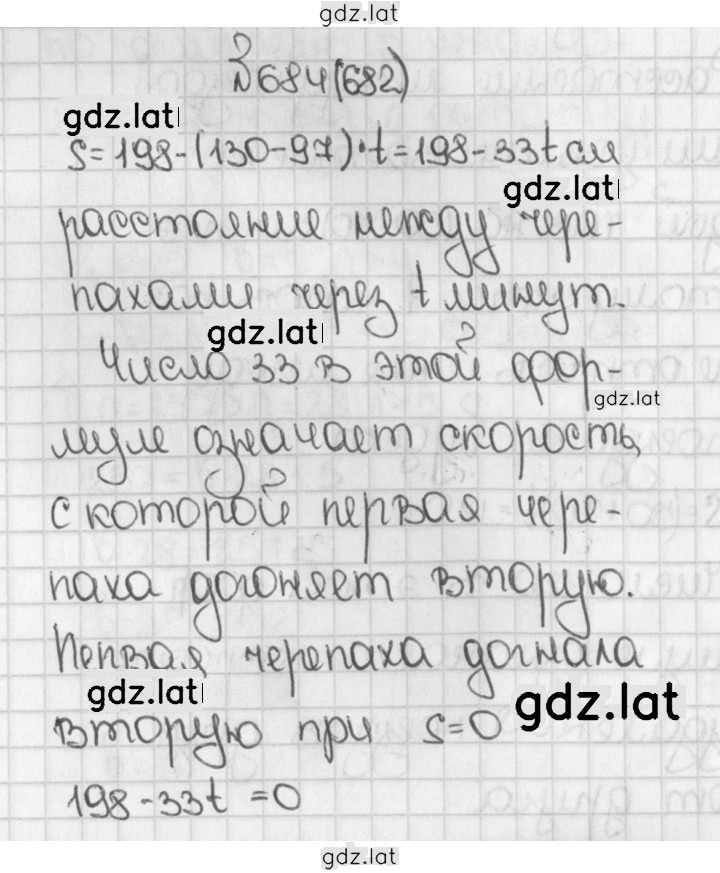 gdz.lat
№684(682)
gdz.lat
S=198-(130-97)·t=198-33t см
gdz.lat
расстояние между чере-
пахами через t минут.
gdz.lat
Число 33 в этой фор-
gdz.lat
муле означает скорость,
с которой первая чере-
паха догоняет вторую.
Первая черепаха догнала
gdz.lat
gdz.lat
вторую при S=0
198-33t=0
gdz.lat